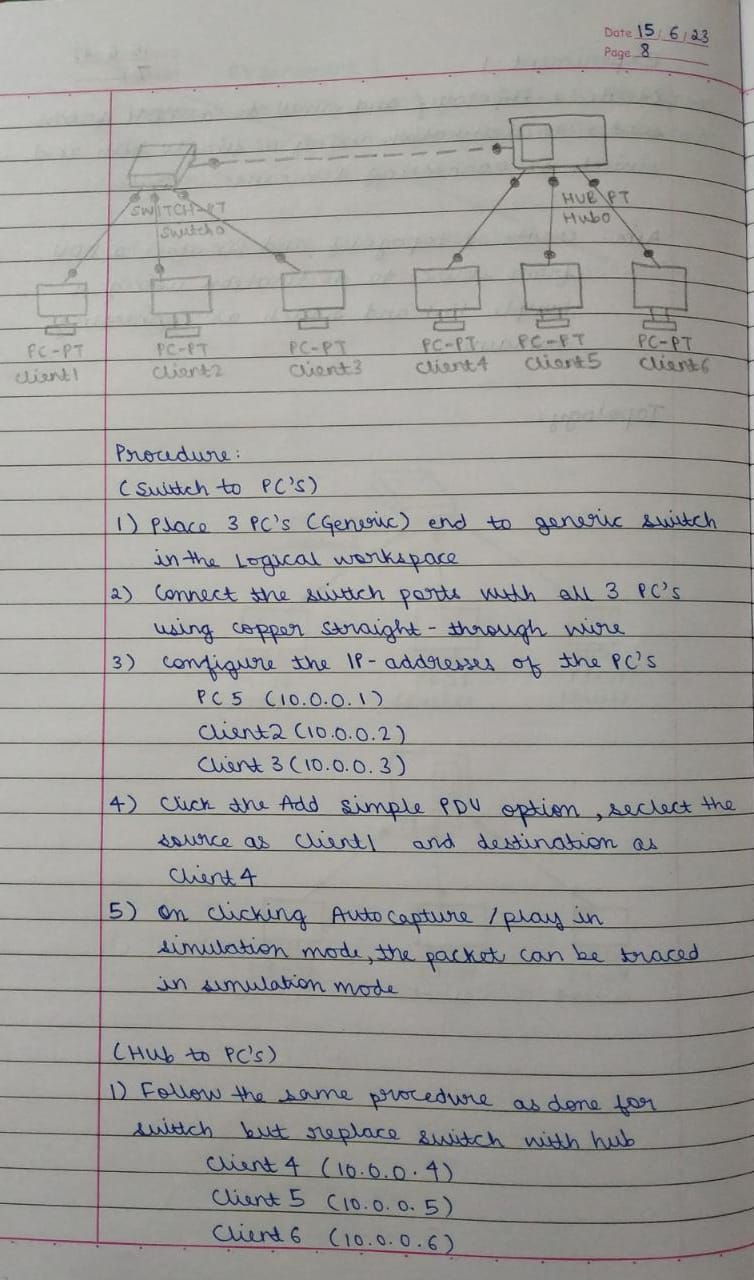 Date 15/6/23
Page 8
SWITCH-PT
Switch0
HUB-PT
Hub0
PC-PT
Client1
PC-PT
Client2
PC-PT
Client3
PC-PT
Client4
PC-PT
Client5
PC-PT
Client6
Procedure:
(Switch to PC's)
1) Place 3 PC's (Generic) end to generic switch
in the Logical workspace
2) Connect the switch ports with all 3 PC's
using copper straight-through wire
3) Configure the IP-addresses of the PC's
PC5 (10.0.0.1)
Client2 (10.0.0.2)
Client 3 (10.0.0.3)
4) Click the Add Simple PDU option, seclect the
source as Client1 and destination as
Client 4
5) On clicking Autocapture / play in
simulation mode, the packet can be traced
in simulation mode
(Hub to PC's)
1) Follow the same procedure as done for
switch but replace switch with hub
Client 4 (10.0.0.4)
Client 5 (10.0.0.5)
Client 6 (10.0.0.6)